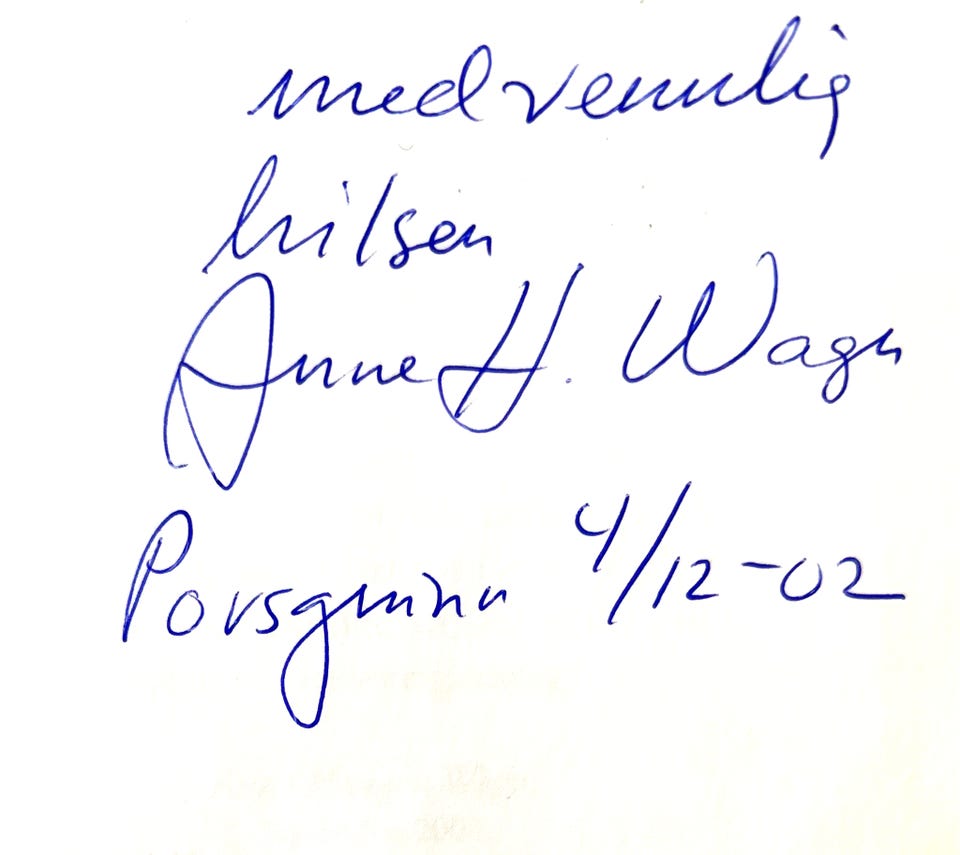 med vennlig
hilsen
Anne H. Wago
Porsgrunn 4/12-02